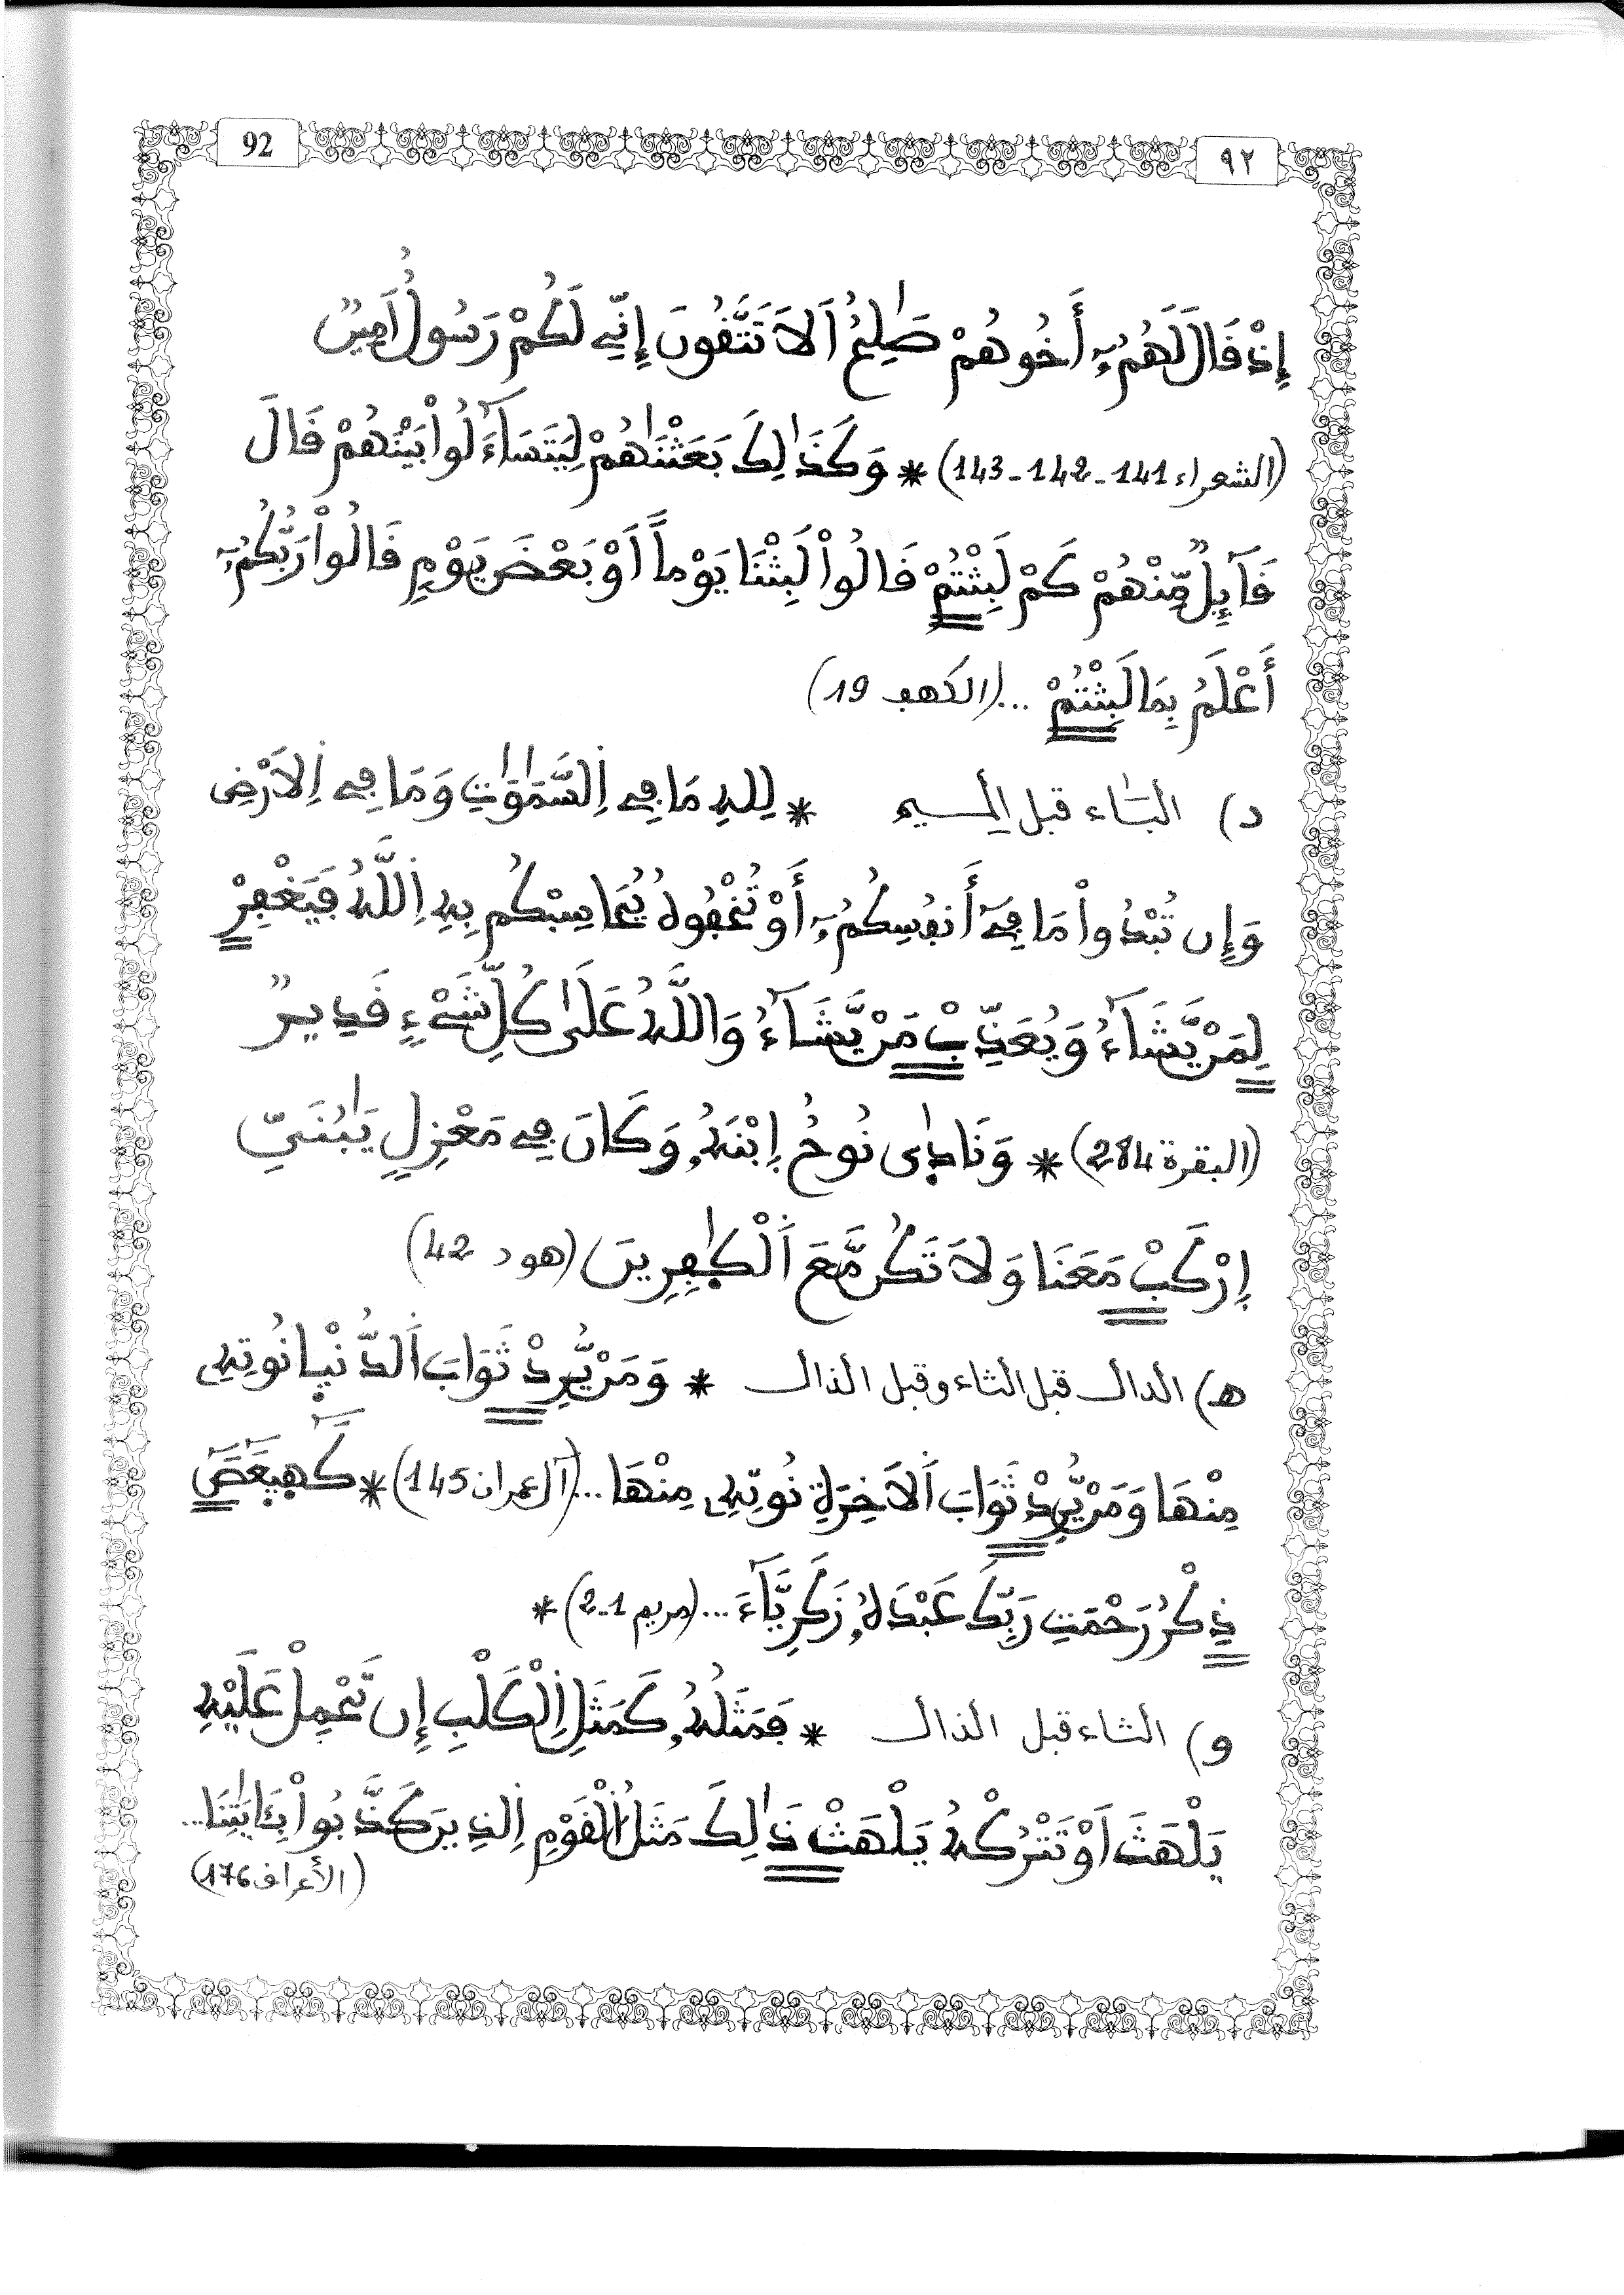 92 ٩٢
إِذْ قَالَ لَهُمُۥٓ أَخُوهُمْ صَٰلِحٌ اَلَا تَتَّقُونَ إِنِّے لَكُمْ رَسُولٌ اَمِينٌ
(الشعراء 141 - 142 - 143) * وَكَذَٰلِكَ بَعَثْنَٰهُمْ لِيَتَسَآءَلُواْ بَيْنَهُمْ قَالَ
قَآئِلٌ مِّنْهُمْ كَمْ لَبِثْتُمْ قَالُواْ لَبِثْنَا يَوْماً اَوْ بَعْضَ يَوْمٍ قَالُواْ رَبُّكُمُۥٓ
أَعْلَمُ بِمَا لَبِثْتُمْ ... (الكهف 19)
د) الباء قبل الميم * لِلهِ مَا فِے اِلسَّمَٰوَٰتِ وَمَا فِے اِلَارْضِ
وَإِن تُبْدُواْ مَا فِےٓ أَنفُسِكُمُۥٓ أَوْ تُخْفُوهُ يُحَاسِبْكُم بِهِ اِللَّهُ فَيَغْفِرْ
لِمَنْ يَّشَآءُ وَيُعَذِّبْ مَنْ يَّشَآءُ وَاللَّهُ عَلَىٰ كُلِّ شَےْءٍ قَدِيرٌ
(البقرة 284) * وَنَادَىٰ نُوحٌ اِبْنَهُۥ وَكَانَ فِے مَعْزِلٍ يَٰبُنَيِّ
اِرْكَبْ مَعَنَا وَلَا تَكُن مَّعَ اَلْكَٰفِرِينَ (هود 42)
هـ) الدال قبل الثاء وقبل الذال * وَمَنْ يُّرِدْ ثَوَابَ اَلدُّنْيِا نُوتِهِۦ
مِنْهَا وَمَنْ يُّرِدْ ثَوَابَ اَلَاخِرَةِ نُوتِهِۦ مِنْهَا ... (آل عمران 145) * كَٓهِيعَٓصَٓ
ذِكْرُ رَحْمَتِ رَبِّكَ عَبْدَهُۥ زَكَرِيَّآءَ ... (مريم 1-2) *
و) الثاء قبل الذال * فَمَثَلُهُۥ كَمَثَلِ اِلْكَلْبِ إِن تَحْمِلْ عَلَيْهِ
يَلْهَثَ اَوْ تَتْرُكْهُ يَلْهَثْ ذَٰلِكَ مَثَلُ اُلْقَوْمِ اِلذِينَ كَذَّبُواْ بِـَٔايَٰتِنَا ...
(الأعراف 176)